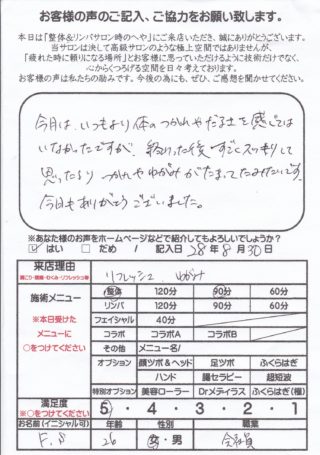 お客様の声のご記入、ご協力をお願い致します。
本日は「整体&リンパサロン時のへや」にご来店いただき、誠にありがとうございます。
当サロンは決して高級サロンのような極上空間ではありませんが、
「疲れた時に頼りになる場所」とお客様に思っていただけるように技術だけでなく、
心からくつろげる空間を日々考えております。
お客様の声は私たちの励みです。今後の為にも、ぜひ、ご感想を聞かせてください。
今月は、いつもより体のつかれやだるさを感じては
いなかったですが、終わった後すごくスッキリして
思ったより つかれやゆがみがたまってたみたいです。
今日もありがとうございました。
※あなた様のお声をホームページなどで紹介してもよろしいでしょうか?
はい □ だめ / 記入日 28年 8月 30日
来店理由 リフレッシュ ゆがみ
肩こり・腰痛・むくみ・リフレッシュ等
施術メニュー
※本日受けた
メニューに
○をつけてください
整体 120分 90分 60分
リンパ 120分 90分 60分
フェイシャル 40分
コラボ コラボA コラボB
その他 メニュー名/
オプション 顔ツボ&ヘッド 足ツボ ふくらはぎ
ハンド 腸セラピー 超短波
特別オプション 美容ローラー Drメディラス ふくらはぎ(極)
満足度
※○をつけてください
5・4・3・2・1
お名前(イニシャル可) 年齢 性別 職業
F.S 26 女・男 会社員